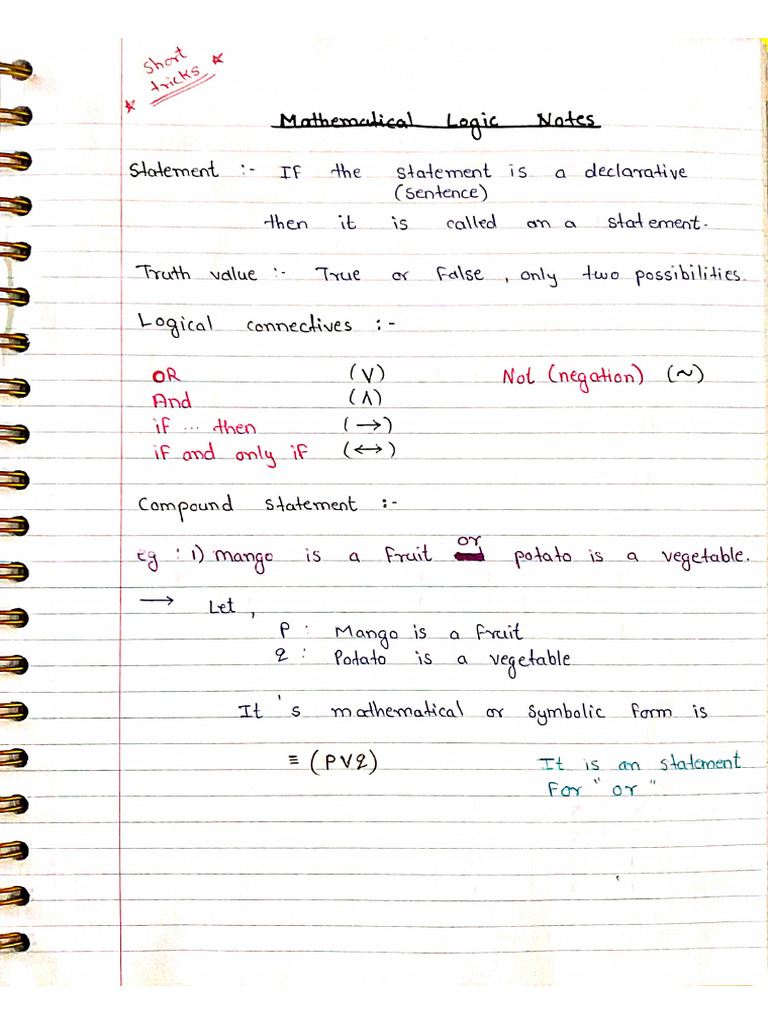 ★ Short tricks ★
Mathematical Logic Notes
Statement :- If the statement is a declarative
(sentence)
then it is called an a statement.
Truth value :- True or False, only two possibilities.
Logical connectives :-
OR (∨) Not (negation) (~)
And (∧)
if ... then (→)
if and only if (↔)
Compound statement :-
or
eg : 1) mango is a fruit potato is a vegetable.
→ Let,
P : Mango is a fruit
q : Potato is a vegetable
It's mathematical or symbolic form is
≡ (P∨q) It is an statement
For "or"